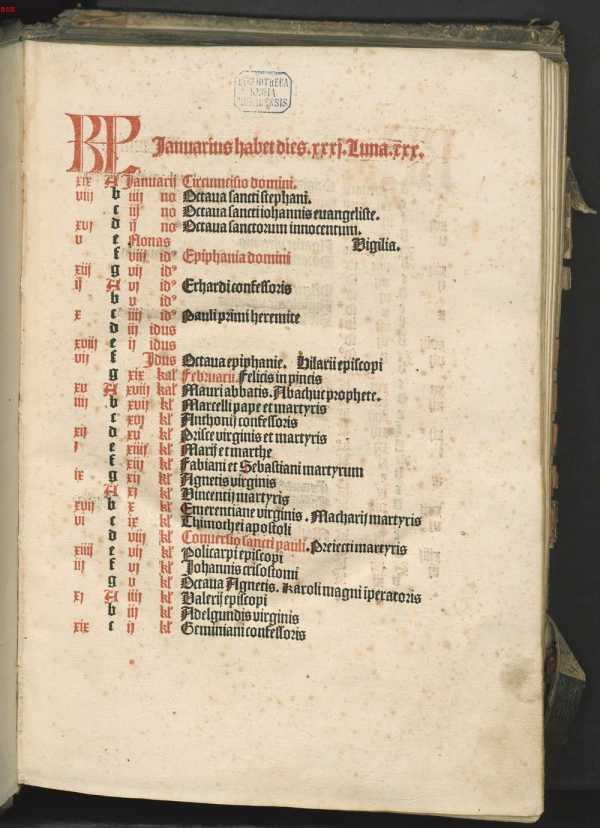 BIBLIOTHECA
REGIA
MONACENSIS
KL Januarius habet dies .xxxj. Luna .xxx.
xix A Januarij Circumcisio domini.
viij b iiij no Octaua sancti stephani.
c iij no Octaua sancti iohannis euangeliste.
xvj d ij no Octaua sanctorum innocentum.
v e Nonas Vigilia.
f viij idꝰ Epiphania domini
xiij g vij idꝰ
ij A vj idꝰ Erhardi confessoris
b v idꝰ
x c iiij idꝰ Pauli primi heremite
d iij idus
xviij e ij idus
vij f Idus Octaua epiphanie. Hilarij episcopi
g xix kal Februarij. Felicis in pincis
xv A xviij kal Mauri abbatis. Abachuc prophete.
iiij b xvij kl Marcelli pape et martyris
c xvj kl Anthonij confessoris
xij d xv kl Prisce virginis et martyris
j e xiiij kl Marij et marthe
f xiij kl Fabiani et Sebastiani martyrum
ix g xij kl Agnetis virginis
A xj kl Vincentij martyris
xvij b x kl Emerentiane virginis. Macharij martyris
vj c ix kl Thimothei apostoli
d viij kl Conuersio sancti pauli. Preiecti martyris
xiiij e vij kl Policarpi episcopi
iij f vj kl Johannis crisostomi
g v kl Octaua Agnetis. Karoli magni iperatoris
xj A iiij kl Valerij episcopi
b iij kl Adelgundis virginis
xix c ij kl Geminiani confessoris